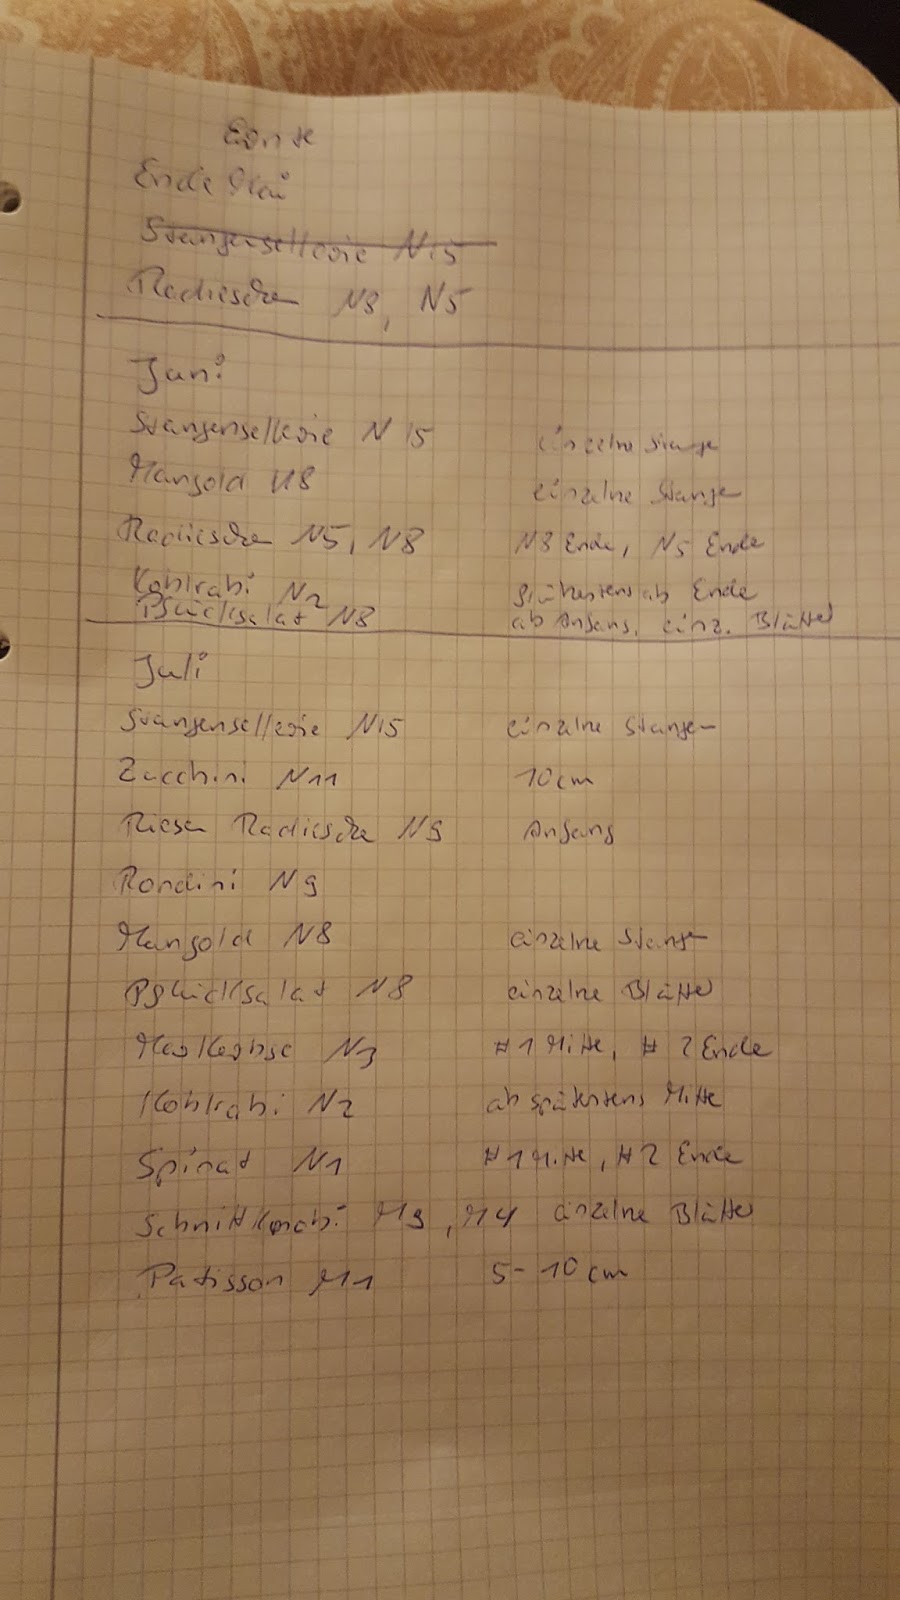 Ernte
Ende Mai
Stangensellerie N15
Radieschen N8, N5
Juni
Stangensellerie N 15 einzelne Stange
Mangold N8 einzelne Stange
Radieschen N5, N8 N8 Ende, N5 Ende
Kohlrabi N2 spätestens ab Ende
Pflücksalat N8 ab Anfang, einz. Blätter
Juli
Stangensellerie N15 einzelne Stangen
Zucchini N11 10cm
Riesen Radieschen N9 Anfang
Rondini N9
Mangold N8 einzelne Stange
Pflücksalat N8 einzelne Blätter
Markerbse N3 #1 Mitte, #2 Ende
Kohlrabi N2 ab spätestens Mitte
Spinat N1 #1 Mitte, #2 Ende
M4 einzelne Blätter
Patisson M1 5-10 cm